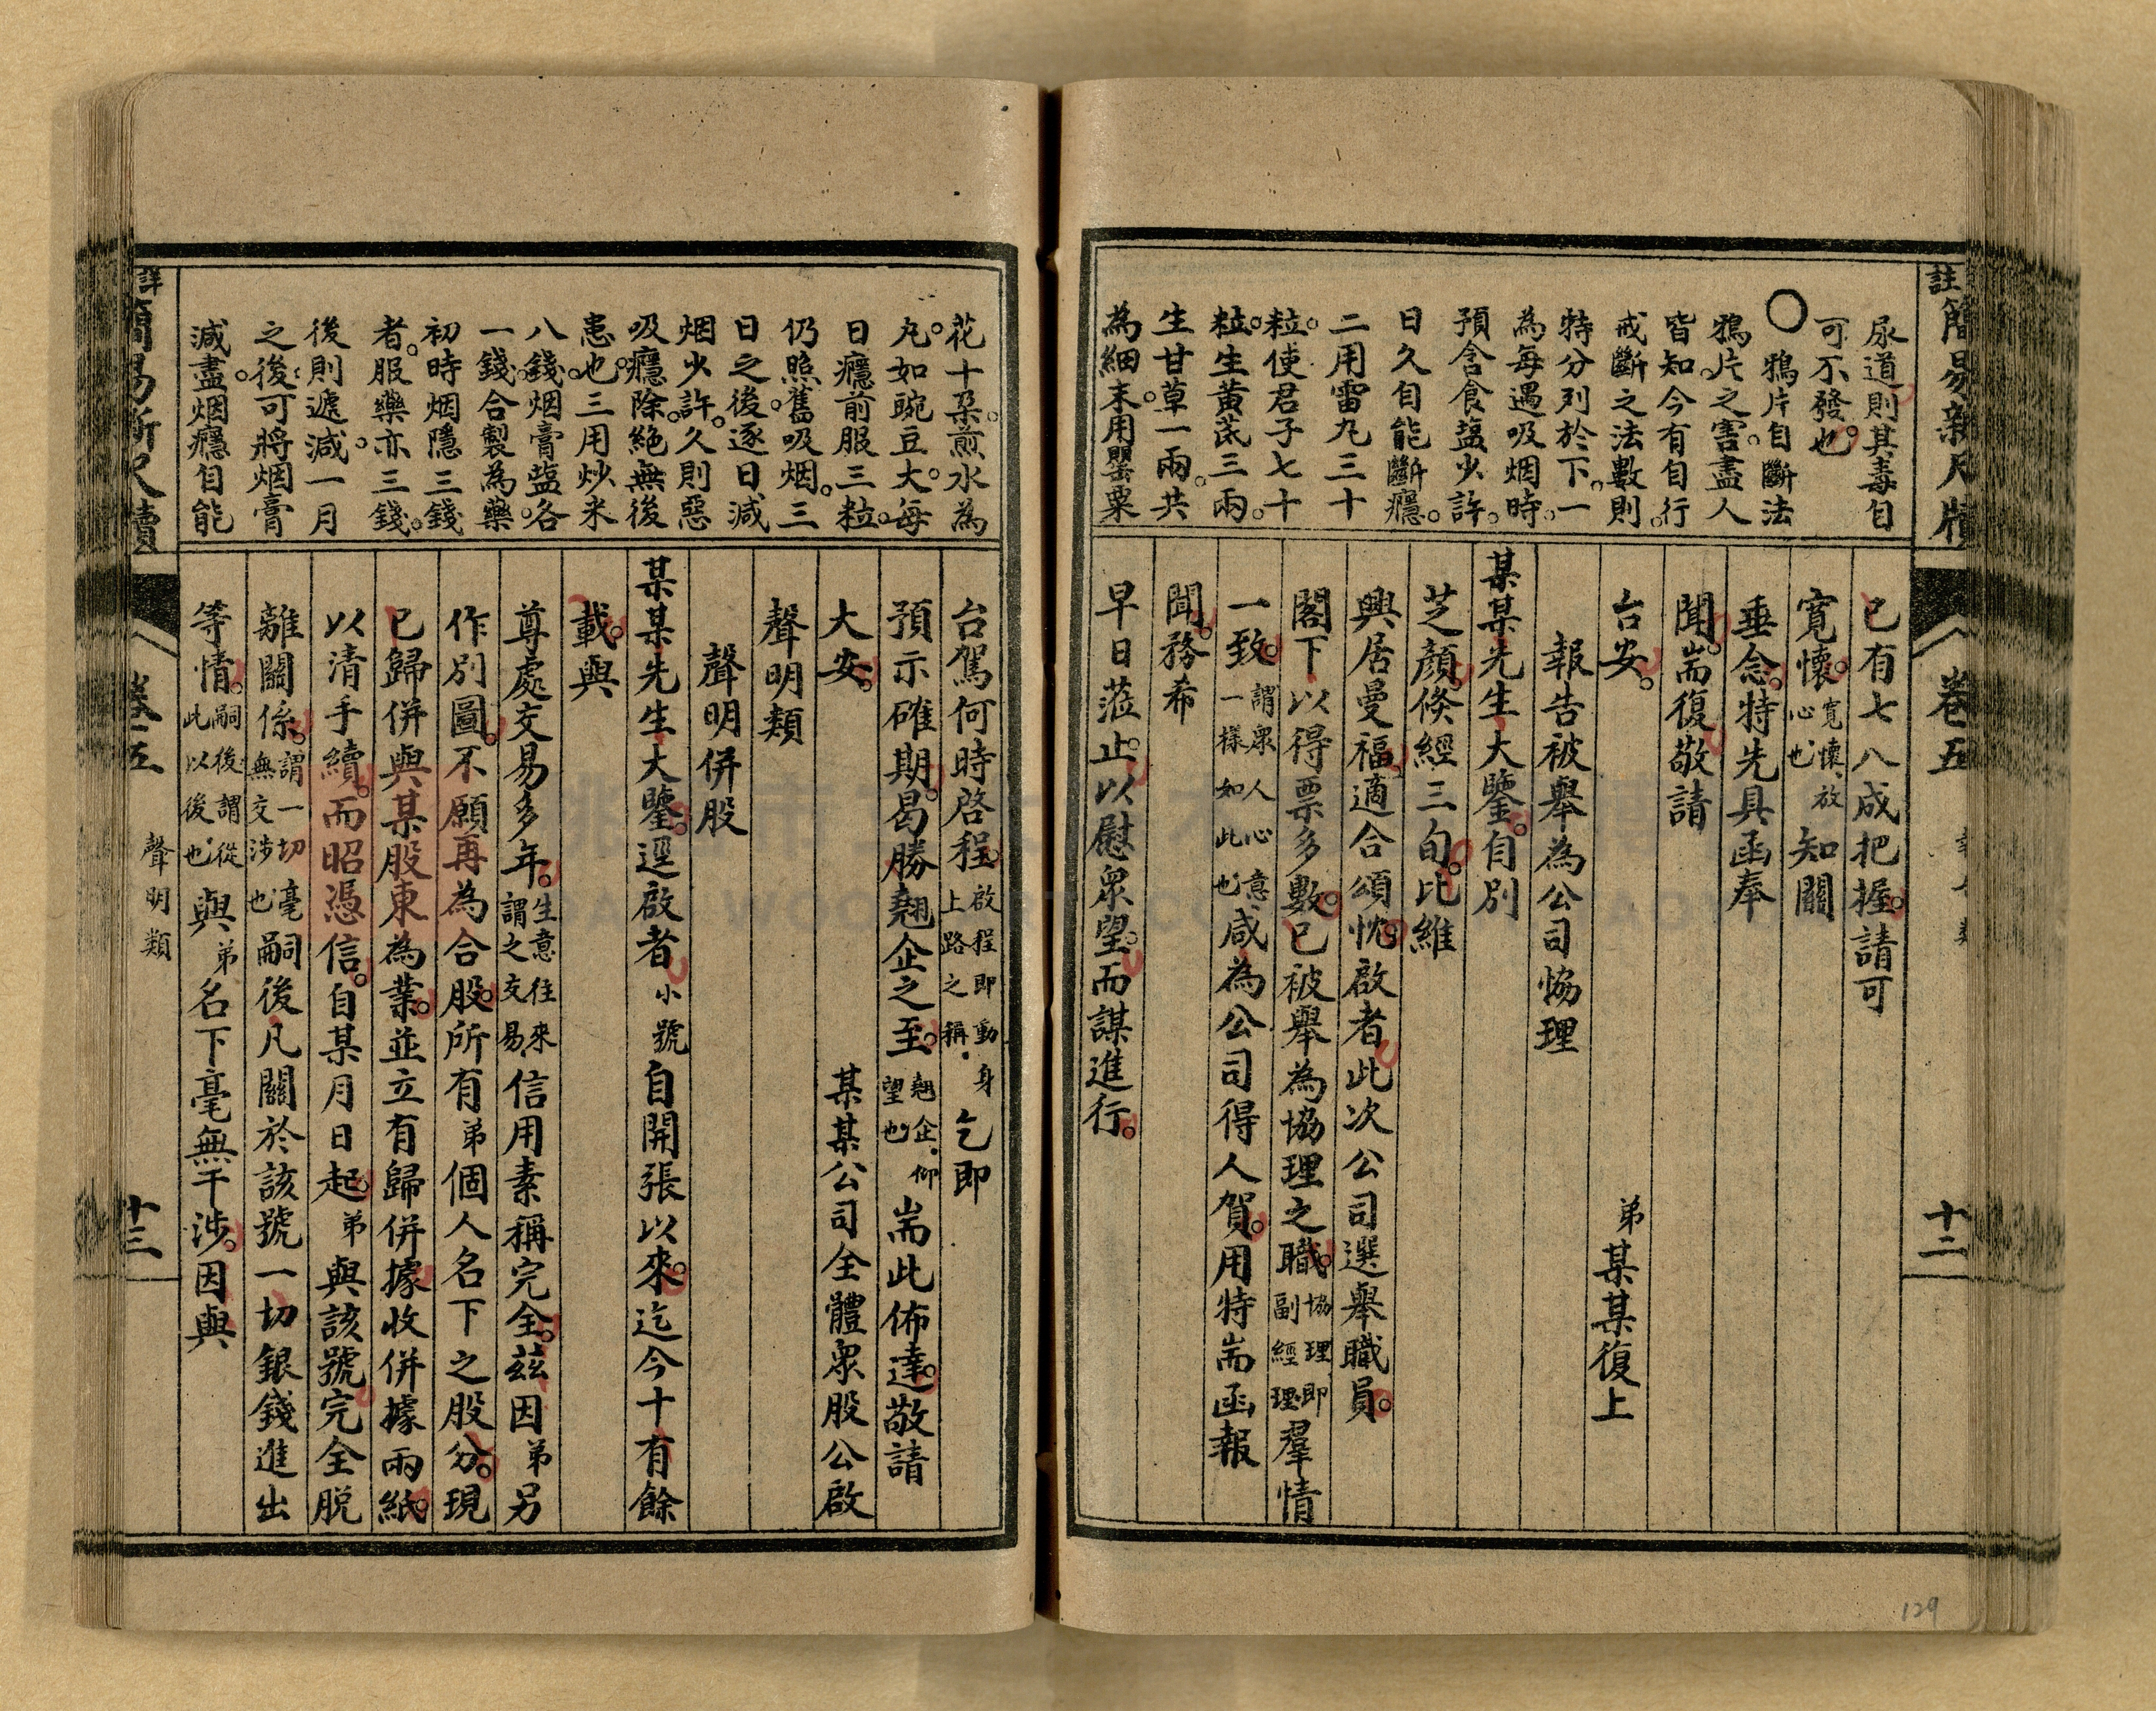 註簡易新尺牘
卷五
十二
尿道則其毒自
可不發也。
○鴉片自斷法
鴉片之害。盡人
皆知。今有自行
戒斷之法數則。
特分列於下。一
為每遇吸烟時。
預含食塩少許。
日久自能斷癮。
二用雷丸三十
粒。使君子七十
粒。生黃芪三兩。
生甘草一兩。共
為細末。用罌粟
已有七八成把握。請可
寬懷。寬懷、放心也、知關
垂念。特先具函奉
聞。耑復敬請
台安。
弟某某復上
報告被舉為公司恊理
某某先生大鑒。自別
芝顏。倐經三旬。比維
興居曼福。適合頌忱。啟者此次公司選舉職員。
閣下以得票多數。已被舉為協理之職。協理、即副經理、羣情
一致。謂眾人心意、一樣如此也、咸為公司得人賀。用特耑函報
聞。務希
早日蒞止。以慰眾望。而謀進行。
花十朶。煎水為
丸。如豌豆大。每
日癮前服三粒。
仍照舊吸烟。三
日之後。逐日減
烟少許。久則惡
吸癮除。絕無後
患也。三用炒米
八錢。烟膏塩各
一錢。合製為藥。
初時烟隱三錢
者。服藥亦三錢。
後則遞減。一月
之後。可將烟膏
減盡。烟癮自能
台駕何時啓程。啟程即動身上路之稱、乞即
預示確期。曷勝翹企之至。翹企、仰望也、耑此佈達。敬請
大安。
某某公司全體眾股公啟
聲明類
聲明併股
某某先生大鑒。逕啟者小號自開張以來。迄今十有餘
載。與
尊處交易多年。生意往來謂之交易、信用素稱完全。茲因弟另
作別圖。不願再為合股。所有弟個人名下之股分。現
已歸併與某股東為業。並立有歸併據收併據兩紙。
以清手續。而昭憑信。自某月日起。弟與該號完全脫
離關係。謂一切毫無交涉也、嗣後凡關於該號一切銀錢進出
等情。嗣後、謂從此以後也、與弟名下毫無干涉。因與
詳簡易新尺牘
卷五
聲明類
十三
129